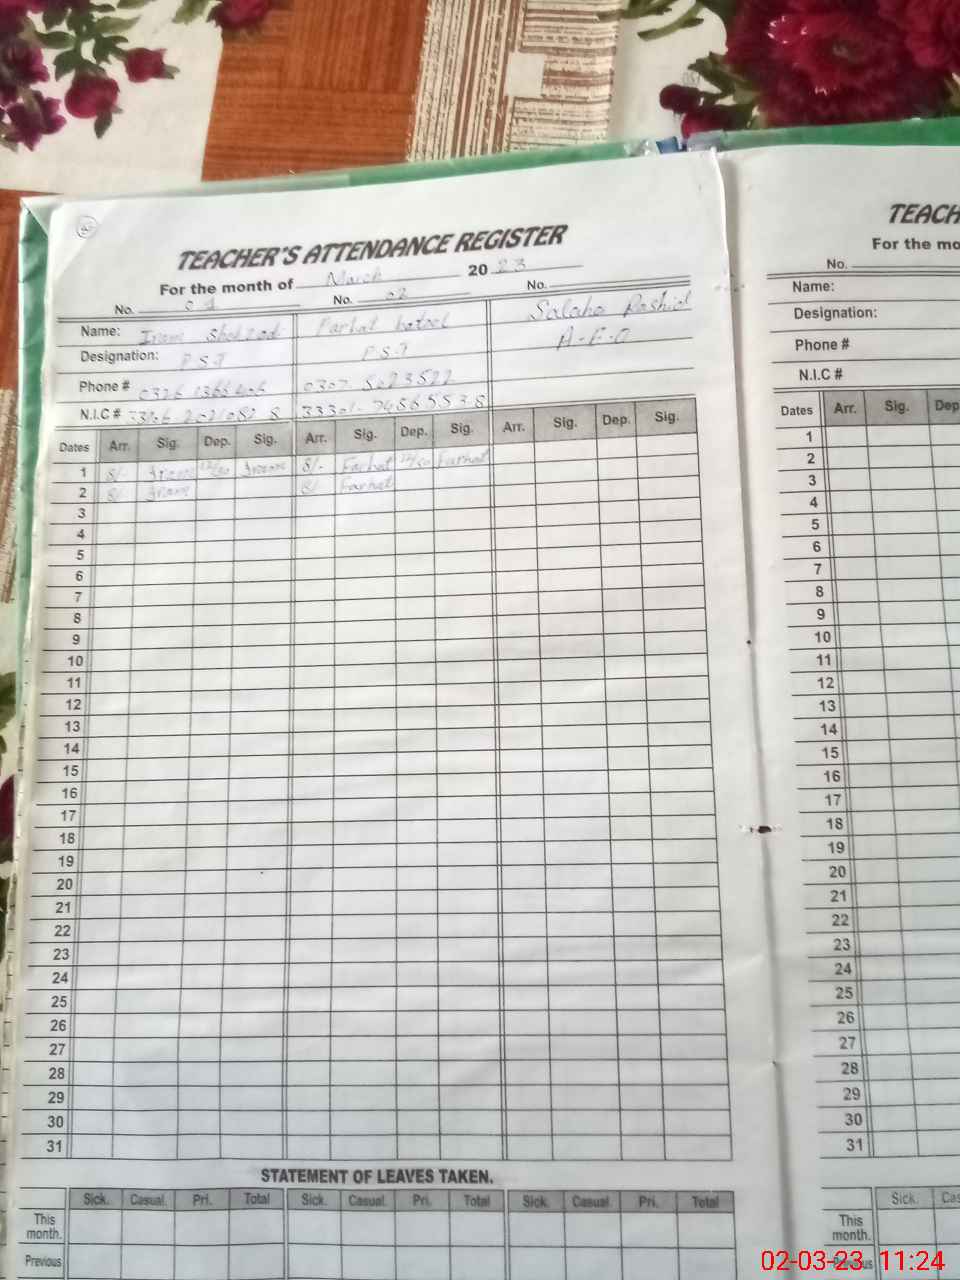 TEACHER'S ATTENDANCE REGISTER
For the month of March 20 23
No. 01 No. 02 No.
Name: Iram Shahzadi Farhat batool Salaha Rashid
Designation: P.S.T P.S.T A-E-O
Phone # 0307. 5023522
N.I.C #
Dates Arr. Sig. Dep. Sig. Arr. Sig. Dep. Sig. Arr. Sig. Dep. Sig.
1 8/- Iram 12/50 Iram 8/- Farhat 12/50 Farhat
2 8/- Iram 8/- Farhat
3
4
5
6
7
8
9
10
11
12
13
14
15
16
17
18
19
20
21
22
23
24
25
26
27
28
29
30
31
STATEMENT OF LEAVES TAKEN.
Sick. Casual. Pri. Total Sick. Casual. Pri. Total Sick. Casual. Pri. Total
This
month.
Previous
TEACH
For the mo
No.
Name:
Designation:
Phone #
N.I.C #
Dates Arr. Sig. Dep
1
2
3
4
5
6
7
8
9
10
11
12
13
14
15
16
17
18
19
20
21
22
23
24
25
26
27
28
29
30
31
Sick. Cas
This
month.
Previous
02-03-23 11:24